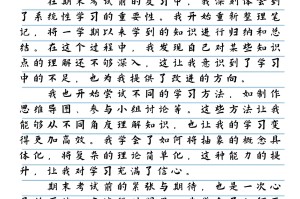 在期末考试前的复习中，我深刻体会到
了系统性学习的重要性。我开始重新整理笔
记，将一学期以来学到的知识进行归纳和总
结。在这个过程中，我发现自己对某些知识
点的理解还不够深入，这让我意识到了学习
中的不足，也为我提供了改进的方向。
我也开始尝试不同的学习方法，如制作
思维导图，参与小组讨论等。这些方法让我
能够从不同角度理解知识，也让我的学习变
得更加高效。我学会了如何将抽象的概念具
体化，将复杂的理论简单化，这种能力的提
升，让我对学习充满了信心。
期末考试前的紧张与期待，也是一次心